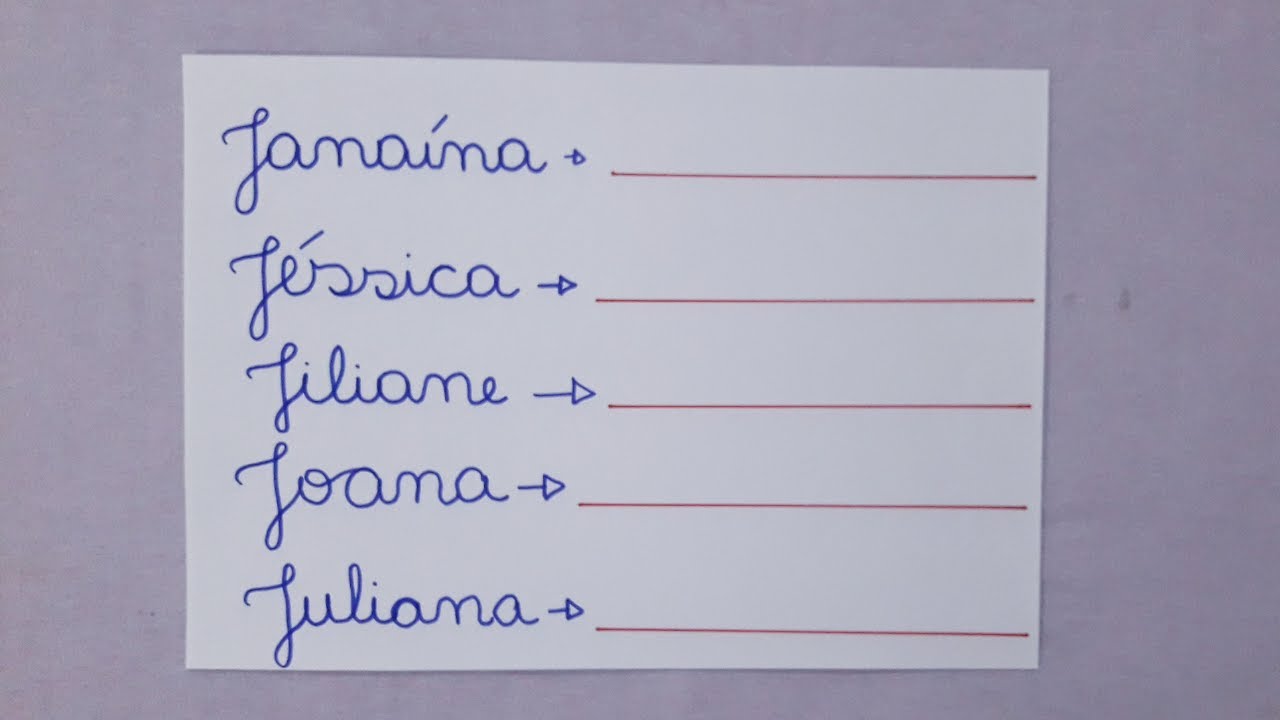 Janaína → ____________
Jéssica → ____________
Jiliane → ____________
Joana → ____________
Juliana → ____________